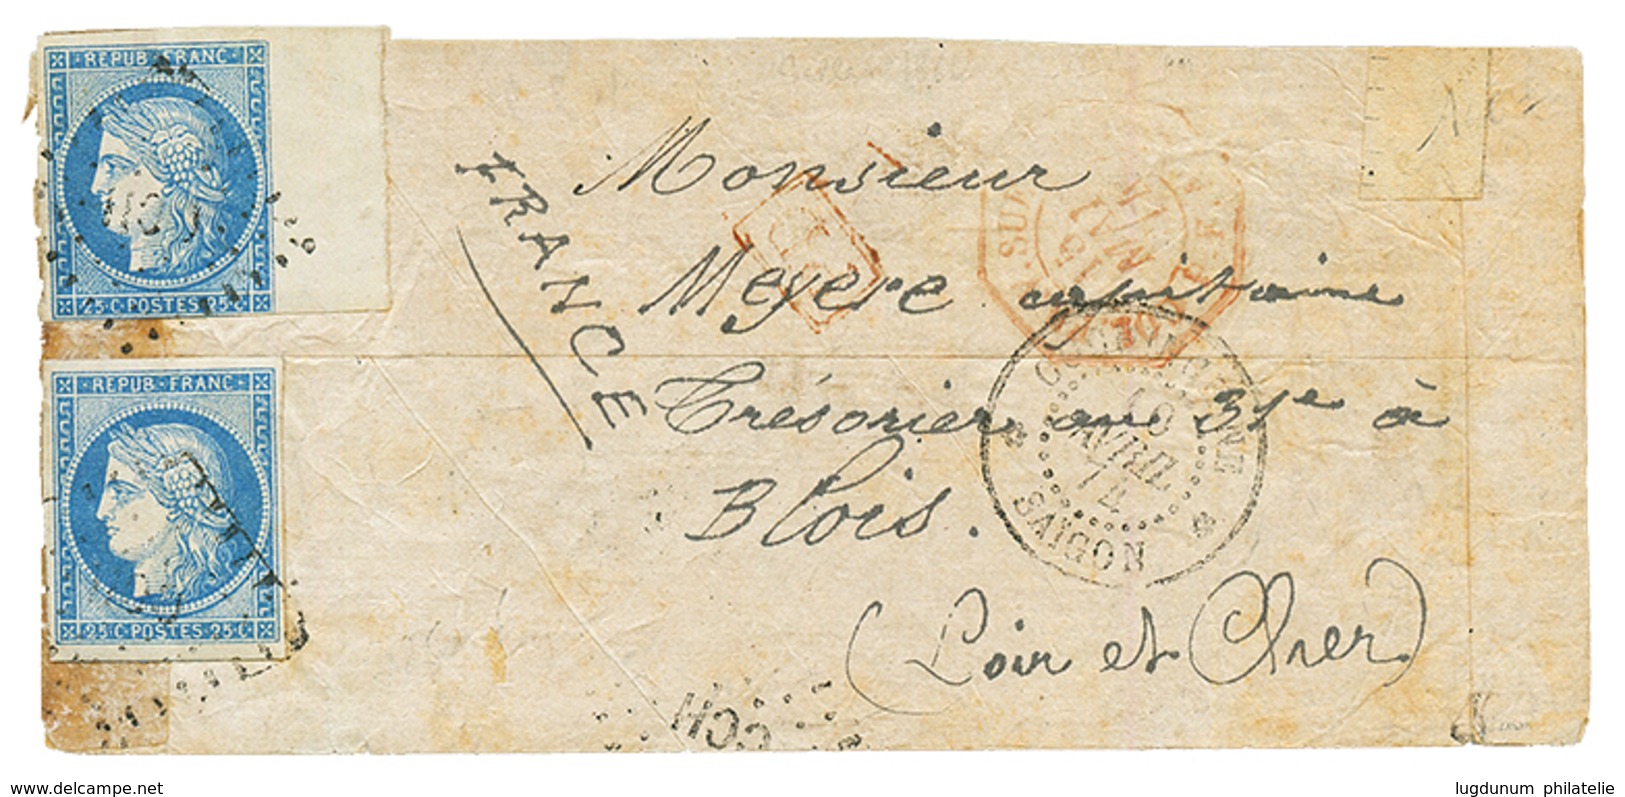 REPUB·FRANC·
25 C·POSTES 25 C
REPUB·FRANC·
25 C·POSTES 25 C
FRANCE
Monsieur
Meyere capitaine
Trésorier au 31e à
Blois.
(Loir et Cher)
COCHINCHINE
10
AVRIL
74
SAIGON
CCH
delcampe.net
lugdunum philatelie